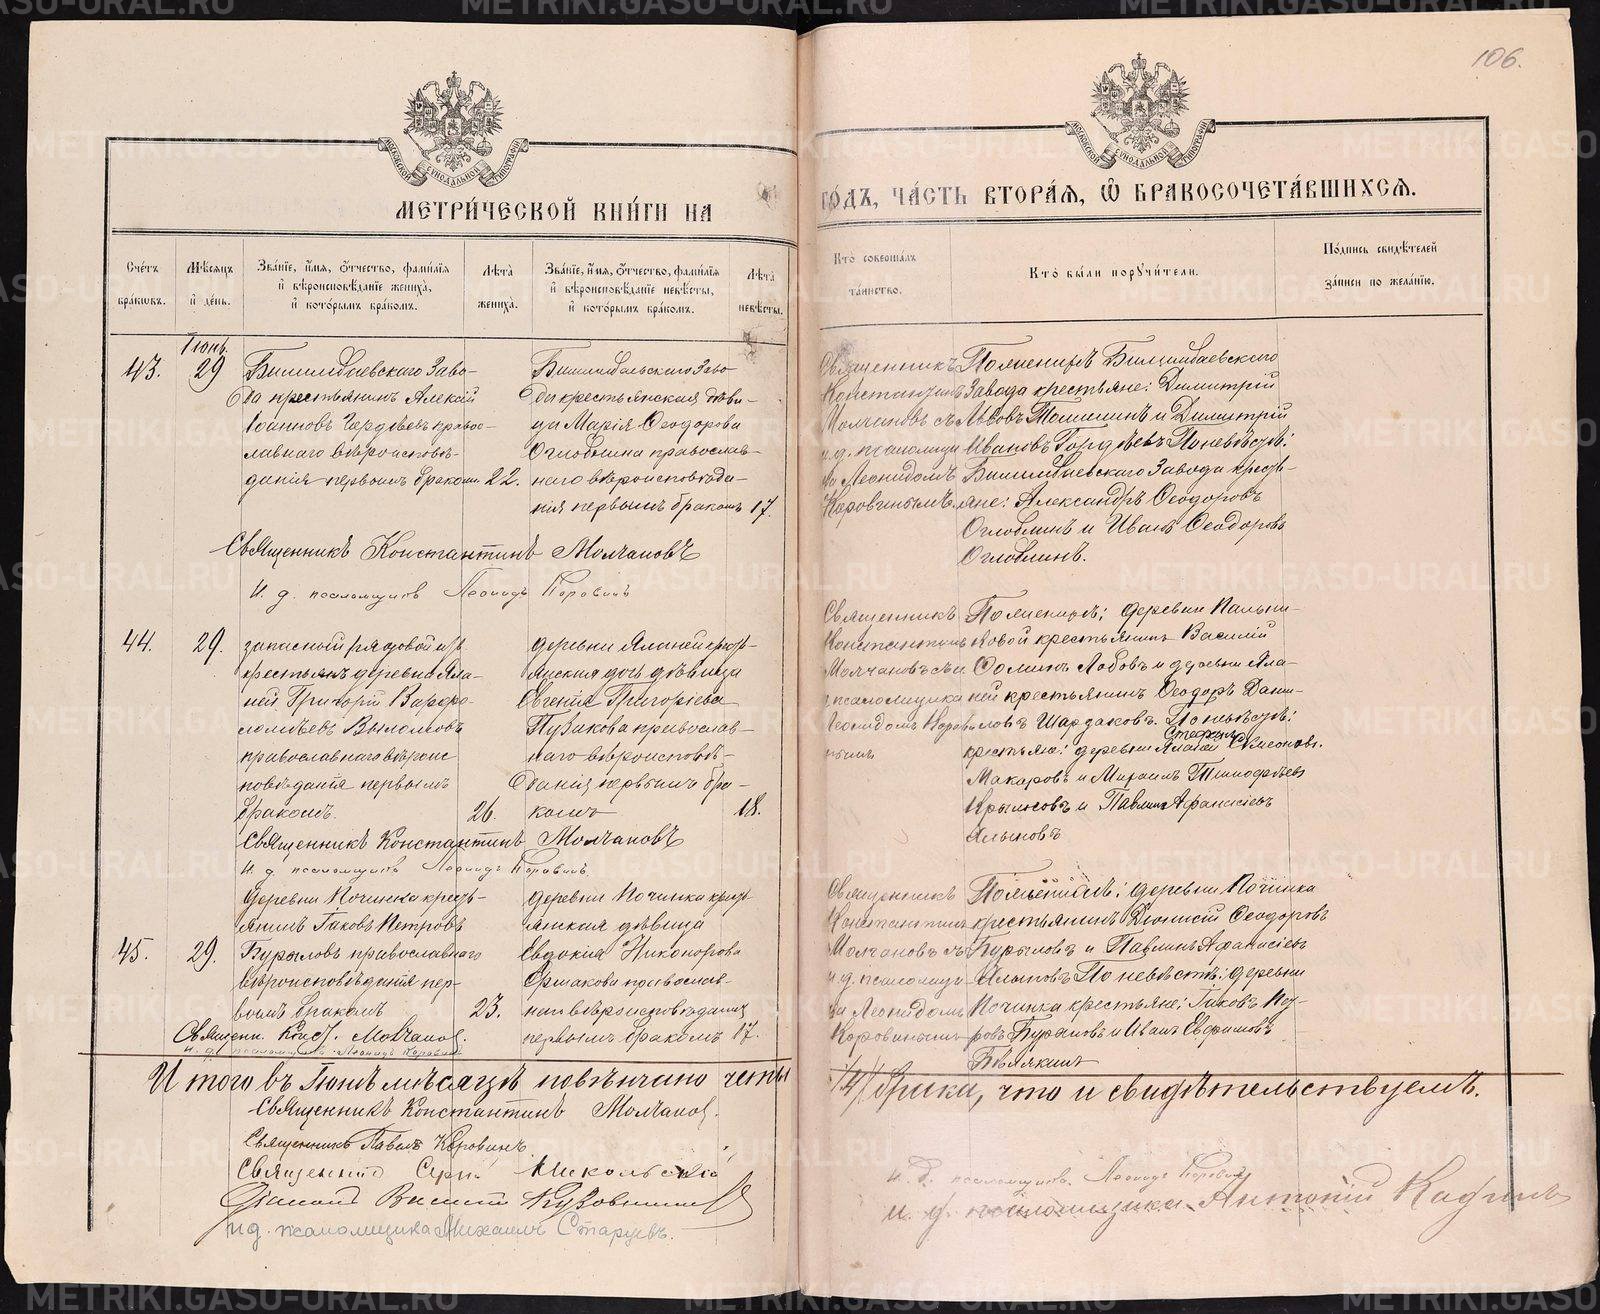 106.
МОСКОВСКОЙ СѴНОДАЛЬНОЙ ТИПОГРАФІИ
МОСКОВСКОЙ СѴНОДАЛЬНОЙ ТИПОГРАФІИ
МЕТРИ́ЧЕСКОЙ КНИ́ГИ НА
ГО́ДЪ, ЧА́СТЬ ВТОРА́Я, Ѽ БРАКОСОЧЕТА́ВШИХСЯ.
Сче́тъ бра́ковъ.
Мѣ́сяцъ и́ де́нь.
Зва́нїе, и́мя, ѻ́тчество, фами́лїя и́ вѣроисповѣ́данїе жениха̀, и́ кото́рымъ бра́комъ.
Лѣ́та жениха̀.
Зва́нїе, и́мя, ѻ́тчество, фами́лїя и́ вѣроисповѣ́данїе невѣ́сты, и́ кото́рымъ бра́комъ.
Лѣ́та невѣ́сты.
Кто̀ соверша́лъ та́инство.
Кто̀ бы́ли поручи́тели.
По́дпись свидѣ́телей за́писи по жела́нїю.
Іюнь.
43.
29
Билимбаевскаго Заво-
да крестьянинъ Алексій
Іоанновъ Гордѣевъ правос-
лавнаго вѣроисповѣ-
данія первымъ бракомъ
22.
Билимбаевскаго Заво
да крестьянская дѣви-
ца Марія Ѳеодорова
Оглоблина православ-
наго вѣроисповѣда-
нія первымъ бракомъ
17.
Священникъ
Константинъ
Молчановъ съ
и.д. псаломщи
ка Леонидомъ
Коровинымъ
По женихѣ Билимбаевскаго
Завода крестьяне: Димитрій
Львовъ и Димитрій
Ивановъ Гордѣевъ По невѣстѣ:
Билимбаевскаго Завода кресть-
яне: Александръ Ѳеодоровъ
Оглоблинъ и Иванъ Ѳеодоровъ
Оглоблинъ.
Священникъ Константинъ Молчановъ
И. д. псаломщика Леонидъ Коровинъ
44.
29.
запасной рядовой изъ
крестьянъ деревни Яла-
ней Григорій Варфо-
ломѣевъ
православнаго вѣроис
повѣданія первымъ
бракомъ.
26.
деревни Яланей кресть-
янская дочь дѣвица
Евгенія Григоріева
православ-
наго вѣроисповѣ-
данія первымъ бра-
комъ
18.
Священникъ
Константинъ
Молчановъ съ и.
д псаломщика
Леонидомъ Корови
нымъ
По женихѣ: деревни
крестьянинъ Василій
и деревни Яла-
ней крестьянинъ Ѳеодоръ Дани-
ловъ Шардаковъ. По невѣстѣ:
крестьяне: деревни Яланей Стефанъ Симеоновъ.
Макаровъ и Михаилъ Тимофѣевъ
Крыласовъ и Павлинъ Афанасіевъ
Священникъ Константинъ Молчановъ
И. д. псаломщика Леонидъ Коровинъ.
45.
29.
деревни Починка кресть-
янинъ Іаковъ Петровъ
Бурыловъ православнаго
вѣроисповѣданія пер-
вымъ бракомъ
23.
деревни Починка кресть
янская дѣвица
Евдокія Никонорова
Ермакова православ-
наго вѣроисповѣданія
первымъ бракомъ
17.
Священникъ
Константинъ
Молчановъ съ
и.д. псаломщи
ка Леонидомъ
Коровинымъ
По женихѣ: деревни Починка
крестьянинъ Діонисій Ѳеодоровъ
Бурыловъ и Павлинъ Афанасіевъ
По невѣстѣ: деревни
Починка крестьяне: Іаковъ Пет-
ровъ Бурыловъ и Иванъ Евфимовъ
Священ. Конст. Молчановъ.
и. д. псаломщика Леонидъ Коровинъ
Итого въ Іюнѣ мѣсяцѣ повѣнчано четы
/4/ брака, что и свидѣтельствуемъ.
Священникъ Константинъ Молчановъ.
Священникъ Павелъ Коровинъ
Священникъ Сергій Никольскій
Діаконъ Василій
и д. псаломщика Михаилъ Старцевъ.
и. д. псаломщика. Леонидъ Коровинъ
и. д. псаломщика Антоній
METRIKI.GASO-URAL.RU